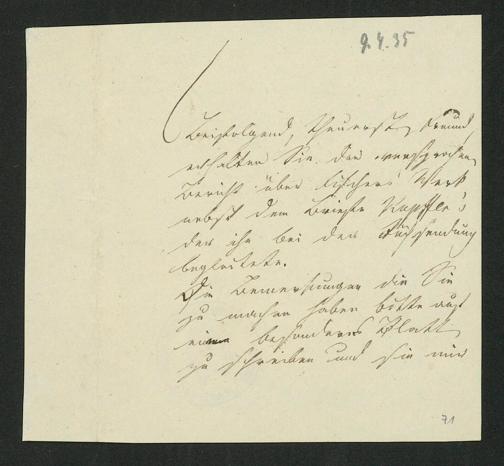 9.4.35
Beifolgend, theuerster Freund
erhalten Sie den versprochenen
Bericht über Fischers Werk
nebst dem Briefe Kapple's
der ihn bei der Rücksendung
begleitete.
Die Bemerkungen die Sie
zu machen haben bitte auf
einem besonderen Blatt
zu schreiben und sie mir
71